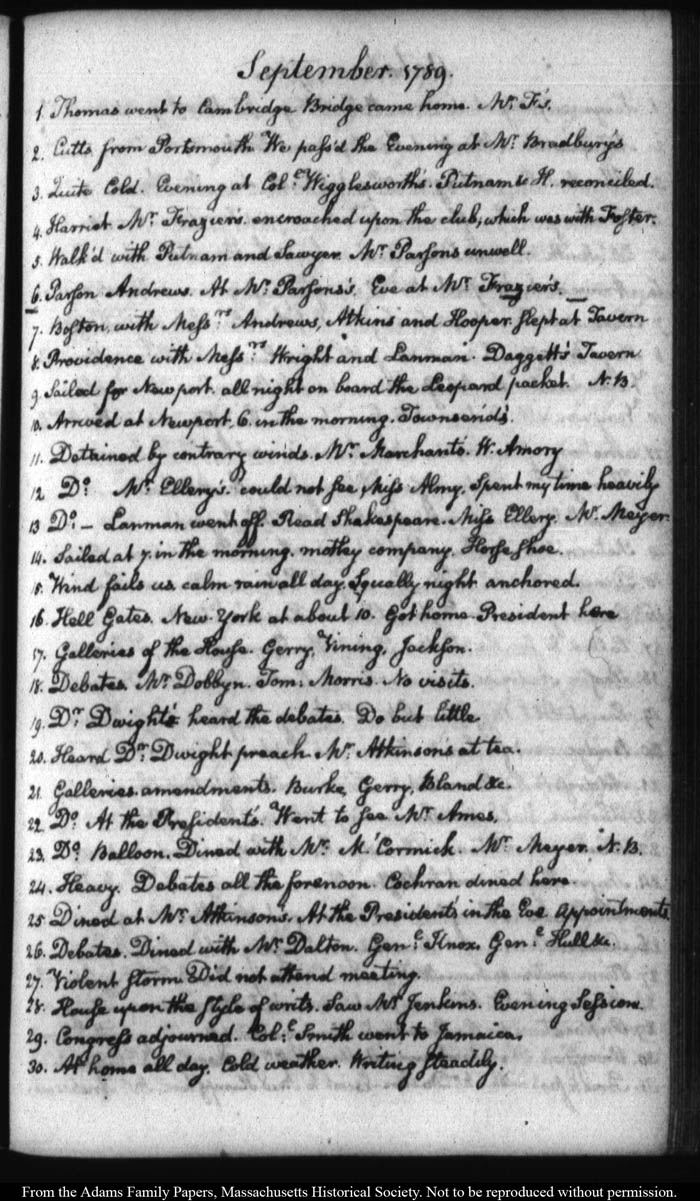 September. 1789.
1. Thomas went to Cambridge Bridge came home. Mr. F's.
2. Cutts from Portsmouth We pass'd the Evening at Mr. Bradbury's
3. Quite Cold. Evening at Col:l Wigglesworth's. Putnam & H. reconciled.
4. Harriet Mr. Frazier's. encroached upon the club; which was with Foster.
5. Walk'd with Putnam and Sawyer. Mr. Parsons unwell.
6. Parson Andrews. At Mr. Parsons's. Eve at Mr. Frazier's.
7. Boston, with Messrs Andrews, Atkins and Hooper. slept at Tavern
8. Providence with Messrs Wright and Lanman. Daggett's Tavern
9. Sailed for Newport. all night on board the Leopard packet. N.B.
10. Arrived at Newport, 6. in the morning. Townsend's.
11. Detained by contrary winds. Mr. Marchant's. W. Amory
12. Do. Mr. Ellery's. could not see, Miss Almy. Spent my time heavily
13. Do. — Lanman went off. Read Shakespeare. Miss Ellery. Mr. Meyer.
14. Sailed at 7. in the morning. motley company. Horse Shoe.
15. Wind fails us. calm rain all day. Squally night anchored.
16. Hell Gates. New-York at about 10. Got home. President here
17. Galleries of the House. Gerry, Vining, Jackson.
18. Debates. Mr. Dobbyn. Tom: Morris. No visits.
19. Dr. Dwight's heard the debates. Do but little
20. Heard Dr. Dwight preach Mr. Atkinson's at tea.
21. Galleries. amendments. Burke, Gerry, Bland &c.
22. Do. At the President's. Went to see Mr. Ames.
23. Do. Balloon. Dined with Mr. M.'Cormick. Mr. Meyer. N.B.
24. Heavy. Debates all the forenoon. Cochran dined here
25. Dined at Mr. Atkinson's. At the President's in the Eve. Appointments
26. Debates. Dined with Mr. Dalton. Gen:l Knox, Gen:l Hull &c.
27. Violent storm Did not attend meeting.
28. House upon the style of writs. Saw Mr Jenkins. Evening Session.
29. Congress adjourned. Col:l Smith went to Jamaica,
30. At home all day. Cold weather. Writing steadily.
From the Adams Family Papers, Massachusetts Historical Society. Not to be reproduced without permission.